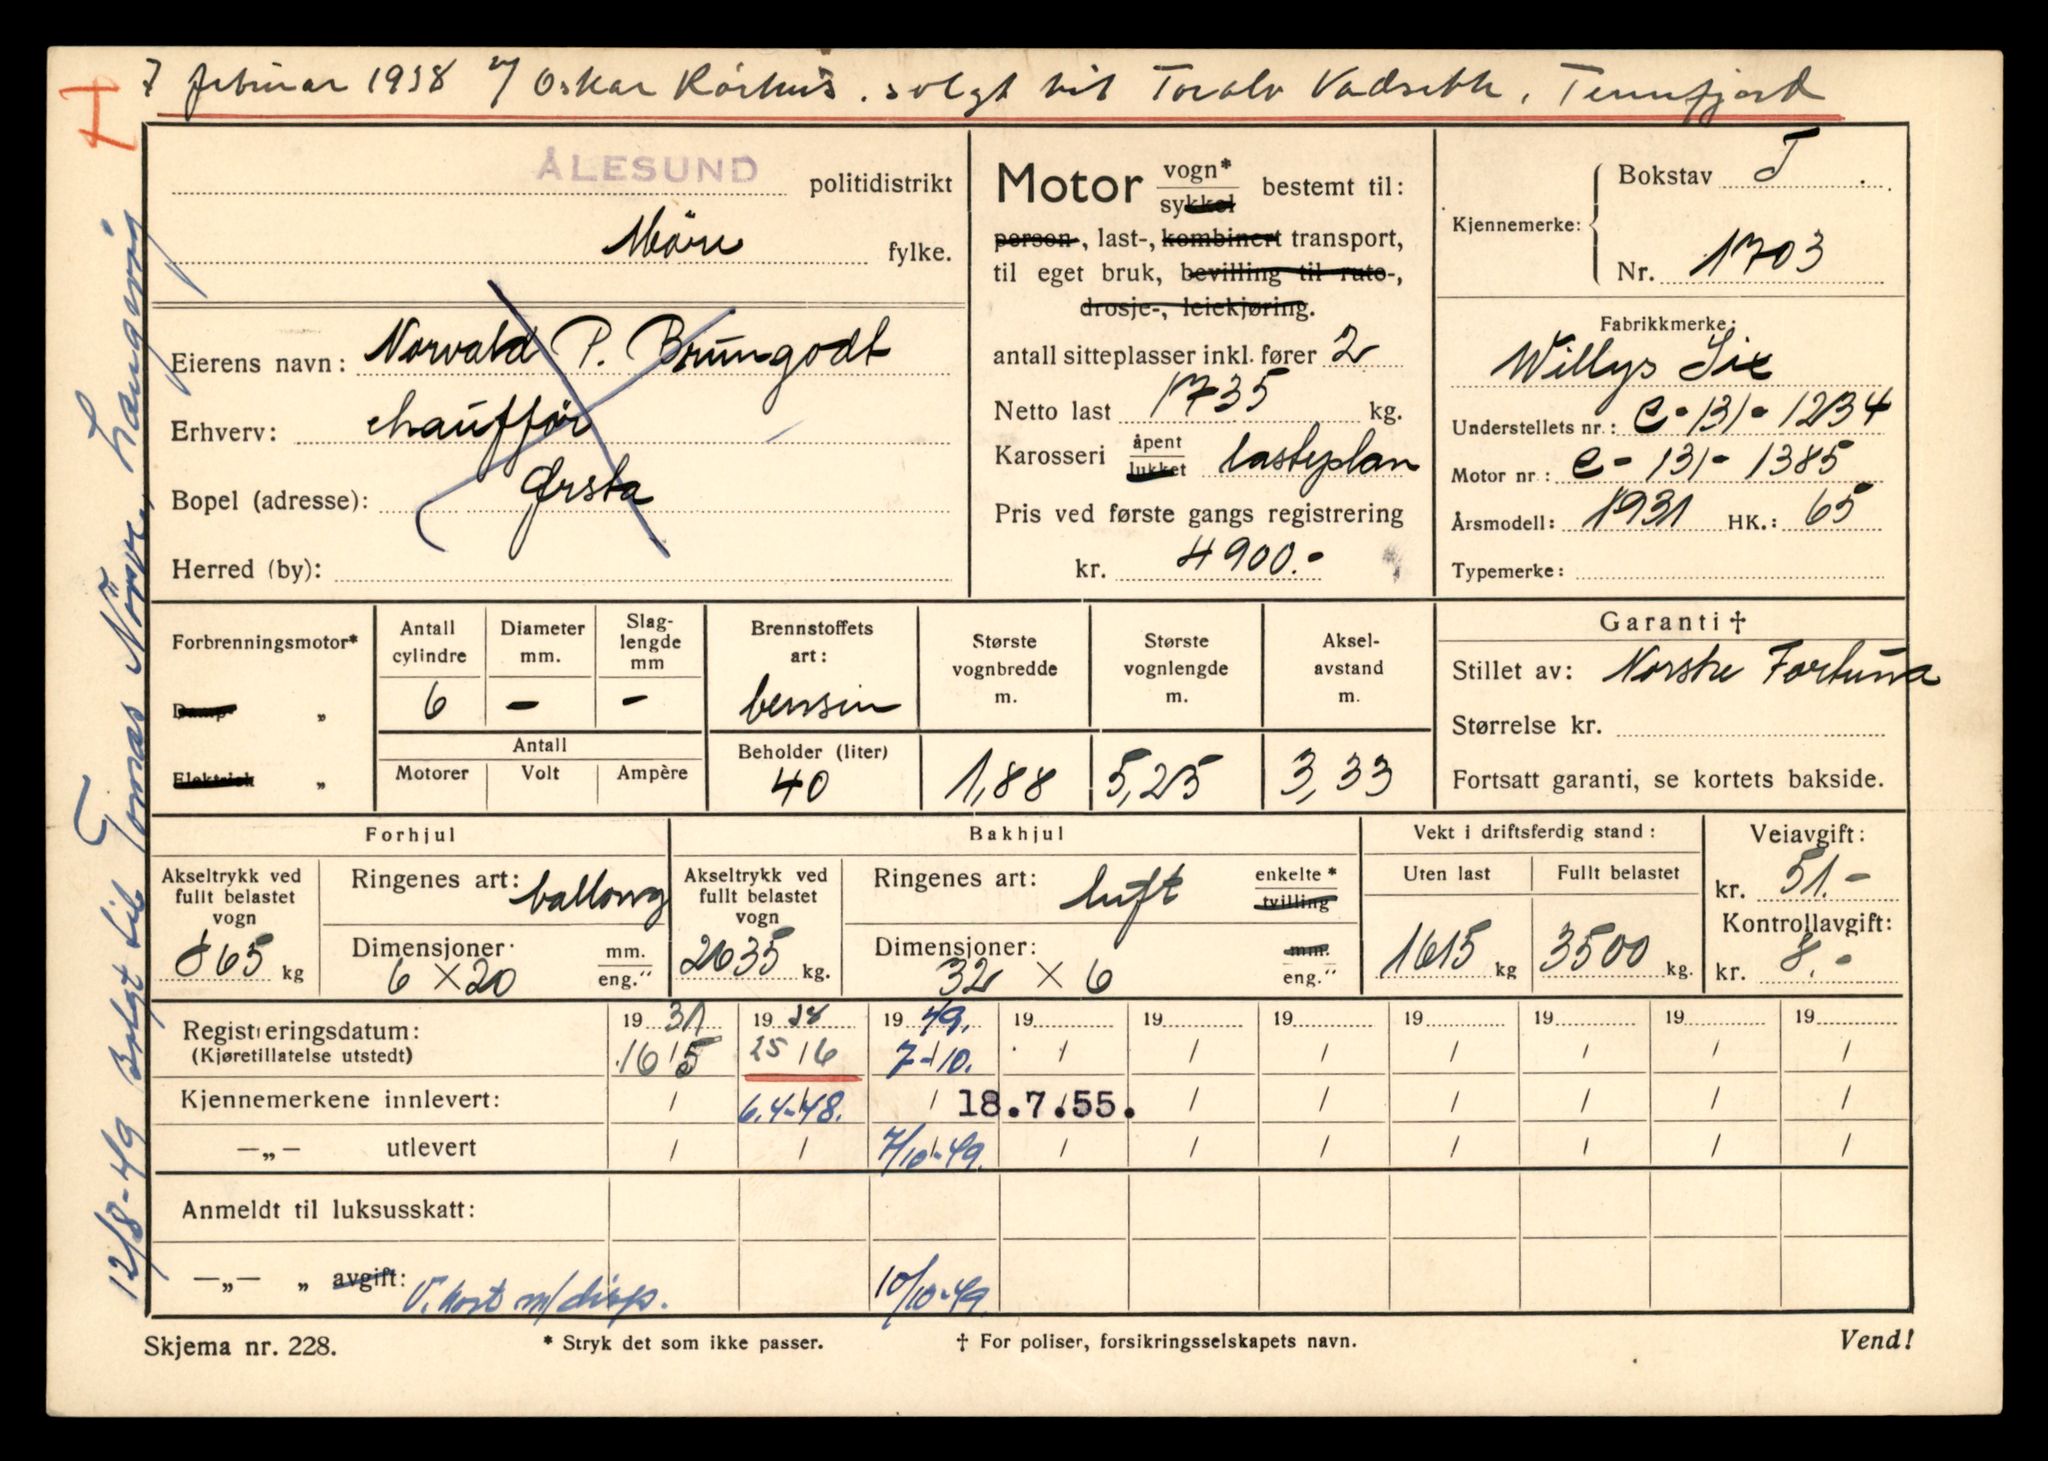 7 februar 1938 v/ Oskar Rörhus. solgt til Toralv Vadsethh, Tennfjord
T
ÅLESUND politidistrikt
Möre fylke.
Eierens navn: Norvald P. Brungodt
Erhverv: chauffør
Bopel (adresse): Ørsta
Herred (by):
Motor vogn* sykkel bestemt til:
person-, last-, kombinert transport,
til eget bruk, bevilling til rute-,
drosje-, leiekjøring.
antall sitteplasser inkl. fører 2
Netto last 1735 kg.
Karosseri åpent lukket lasteplan
Pris ved første gangs registrering
kr. 4900.-
Kjennemerke: Bokstav T
Nr. 1703
Fabrikkmerke:
Willys Six
Understellets nr.: C-131-1234
Motor nr.: C-131-1385
Årsmodell: 1931 HK.: 65
Typemerke:
Forbrenningsmotor*
Damp- „
Elektrisk „
Antall cylindre
6
Diameter mm.
-
Slaglengde mm
-
Antall
Motorer Volt Ampère
Brennstoffets art:
bensin
Beholder (liter)
40
Største vognbredde m.
1,88
Største vognlengde m.
5,25
Akselavstand m.
3,33
Garanti †
Stillet av: Norske Fortuna
Størrelse kr.
Fortsatt garanti, se kortets bakside.
Forhjul
Akseltrykk ved fullt belastet vogn
865 kg
Ringenes art: ballong
Dimensjoner: mm. eng.”
6 × 20
Bakhjul
Akseltrykk ved fullt belastet vogn
2635 kg.
Ringenes art: luft enkelte* tvilling
Dimensjoner: mm. eng.”
32 × 6
Vekt i driftsferdig stand:
Uten last Fullt belastet
1615 kg 3500 kg.
Veiavgift:
kr. 51.-
Kontrollavgift:
kr. 8.-
Registreringsdatum: 1931 1938 1949. 19 19 19 19 19 19 19
(Kjøretillatelse utstedt) 16/5 25/6 7-10. / / / / / / /
Kjennemerkene innlevert: / 6.4-48. / 18.7.55. / / / / / /
—„— utlevert / / 7/10-49. / / / / / / /
Anmeldt til luksusskatt:
—„— „ avgift: V. kort m/disp. 10/10-49.
Skjema nr. 228. * Stryk det som ikke passer. † For poliser, forsikringsselskapets navn. Vend!
12/8-49 Solgt til Tomas Nörve, Langevåg